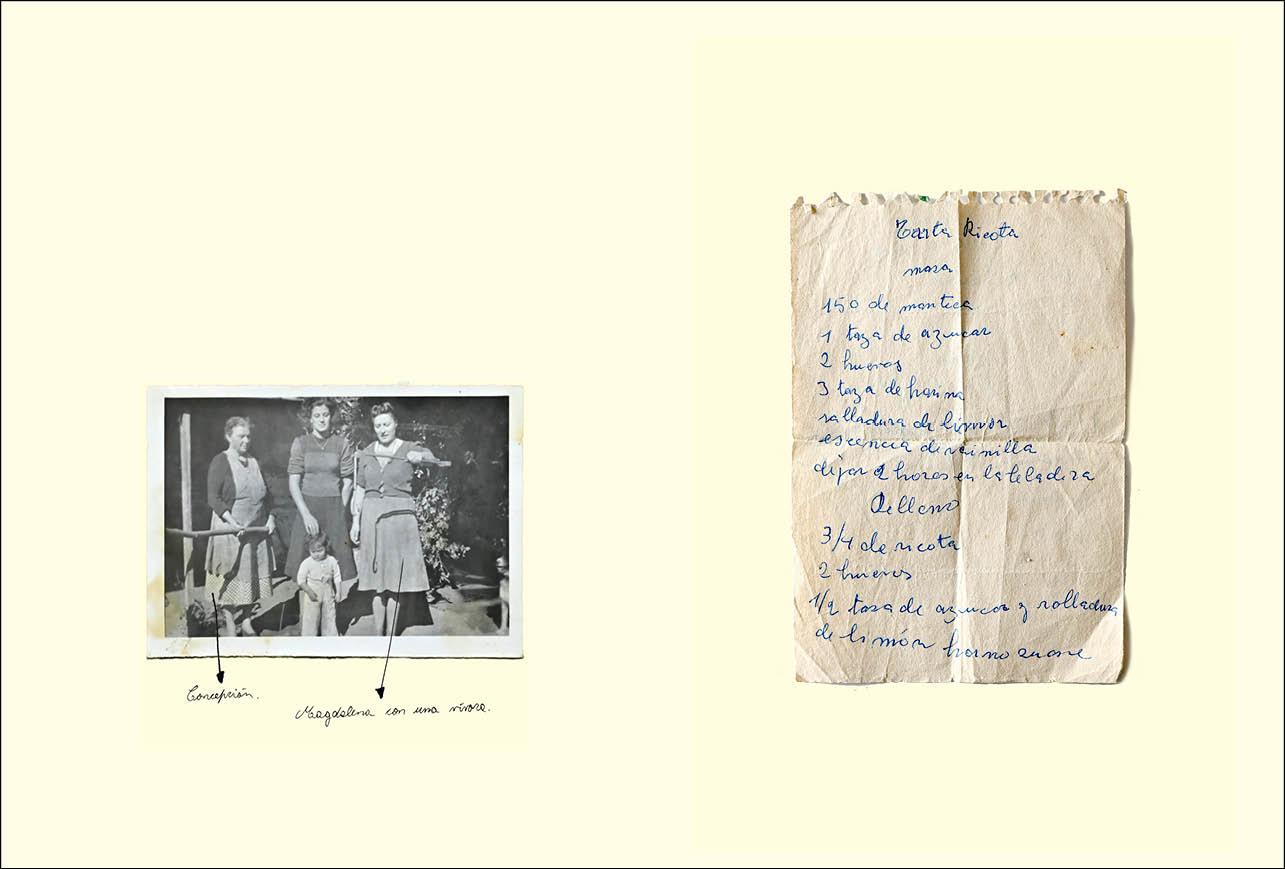 Concepción.
Magdalena con una vívora.
Tarta Ricota
masa
150 de manteca
1 taza de azucar
2 huevos
3 taza de harina
ralladura de limon
escencia de vainilla
dejar 2 horas en la heladera
Relleno
3/4 de ricota
2 huevos
1/2 taza de azucar y ralladura
de limón horno suave